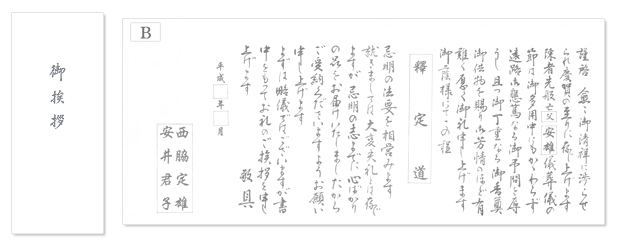 御挨拶
B
謹啓 愈々御清祥に渉らせ
られ慶賀の至りに存じ上げます
陳者先般亡父安雄儀葬儀の
節は御多用中にもかかわらず
遠路御懇篤なる御弔問を辱
うし且つ御丁重なる御香奠
御供物を賜り御芳情のほど有
難く厚く御礼申し上げます
御蔭様にてこの謹
釋定道
忌明の法要を相営みます
就きましては大変失礼とは存じ
ますが忌明の志までに心ばかり
の品をお届けいたしましたから
ご受納くださいますようお願い
申し上げます
まずは略儀ではございますが書
中をもってお礼のご挨拶を申し
上げます
敬具
平成 年 月
西脇定雄
安井君子